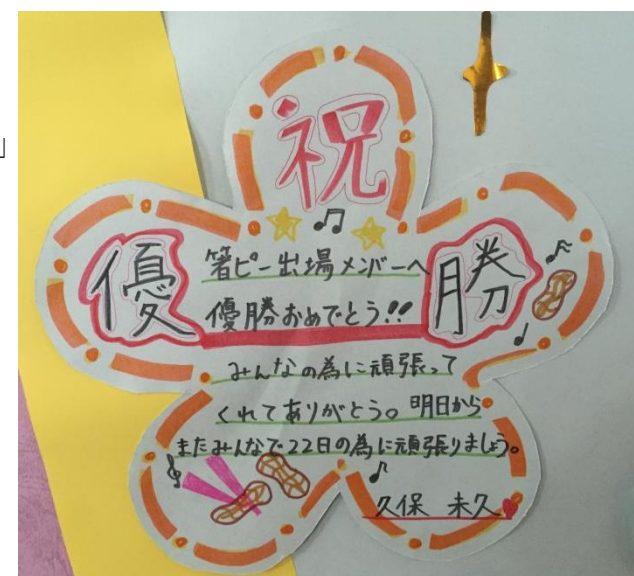 」
祝
優 勝
箸ピー出場メンバーへ
優勝おめでとう!!
みんなの為に頑張って
くれてありがとう。明日から
またみんなで22日の為に頑張りましょう。
久保 未久